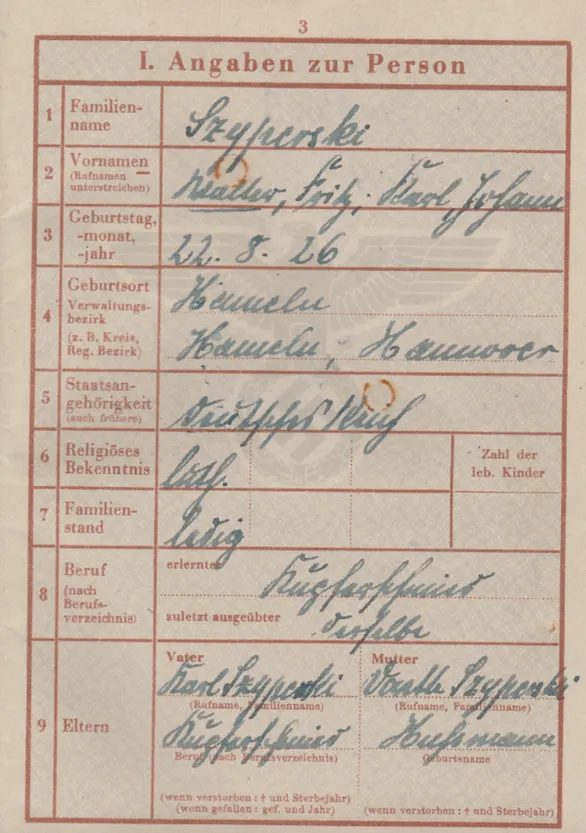 3
I. Angaben zur Person
1 Familien-
name
Szyperski
2 Vornamen
(Rufnamen
unterstreichen)
Walter, Fritz, Karl, Johann
3 Geburtstag,
-monat,
-jahr
22. 8. 26
4 Geburtsort
Verwaltungs-
bezirk
(z. B. Kreis,
Reg. Bezirk)
Hameln
Hameln, Hannover
5 Staatsan-
gehörigkeit
(auch frühere)
Deutsches Reich
6 Religiöses
Bekenntnis
luth.
Zahl der
leb. Kinder
7 Familien-
stand
ledig
8 Beruf
(nach
Berufs-
verzeichnis)
erlernter
Kupferschmied
zuletzt ausgeübter
derselbe
9 Eltern
Vater
Karl Szyperski
(Rufname, Familienname)
Kupferschmied
Beruf (nach Berufsverzeichnis)
(wenn verstorben : † und Sterbejahr)
(wenn gefallen : gef. und Jahr)
Mutter
Szyperski
(Rufname, Familienname)
Geburtsname
(wenn verstorben : † und Sterbejahr)